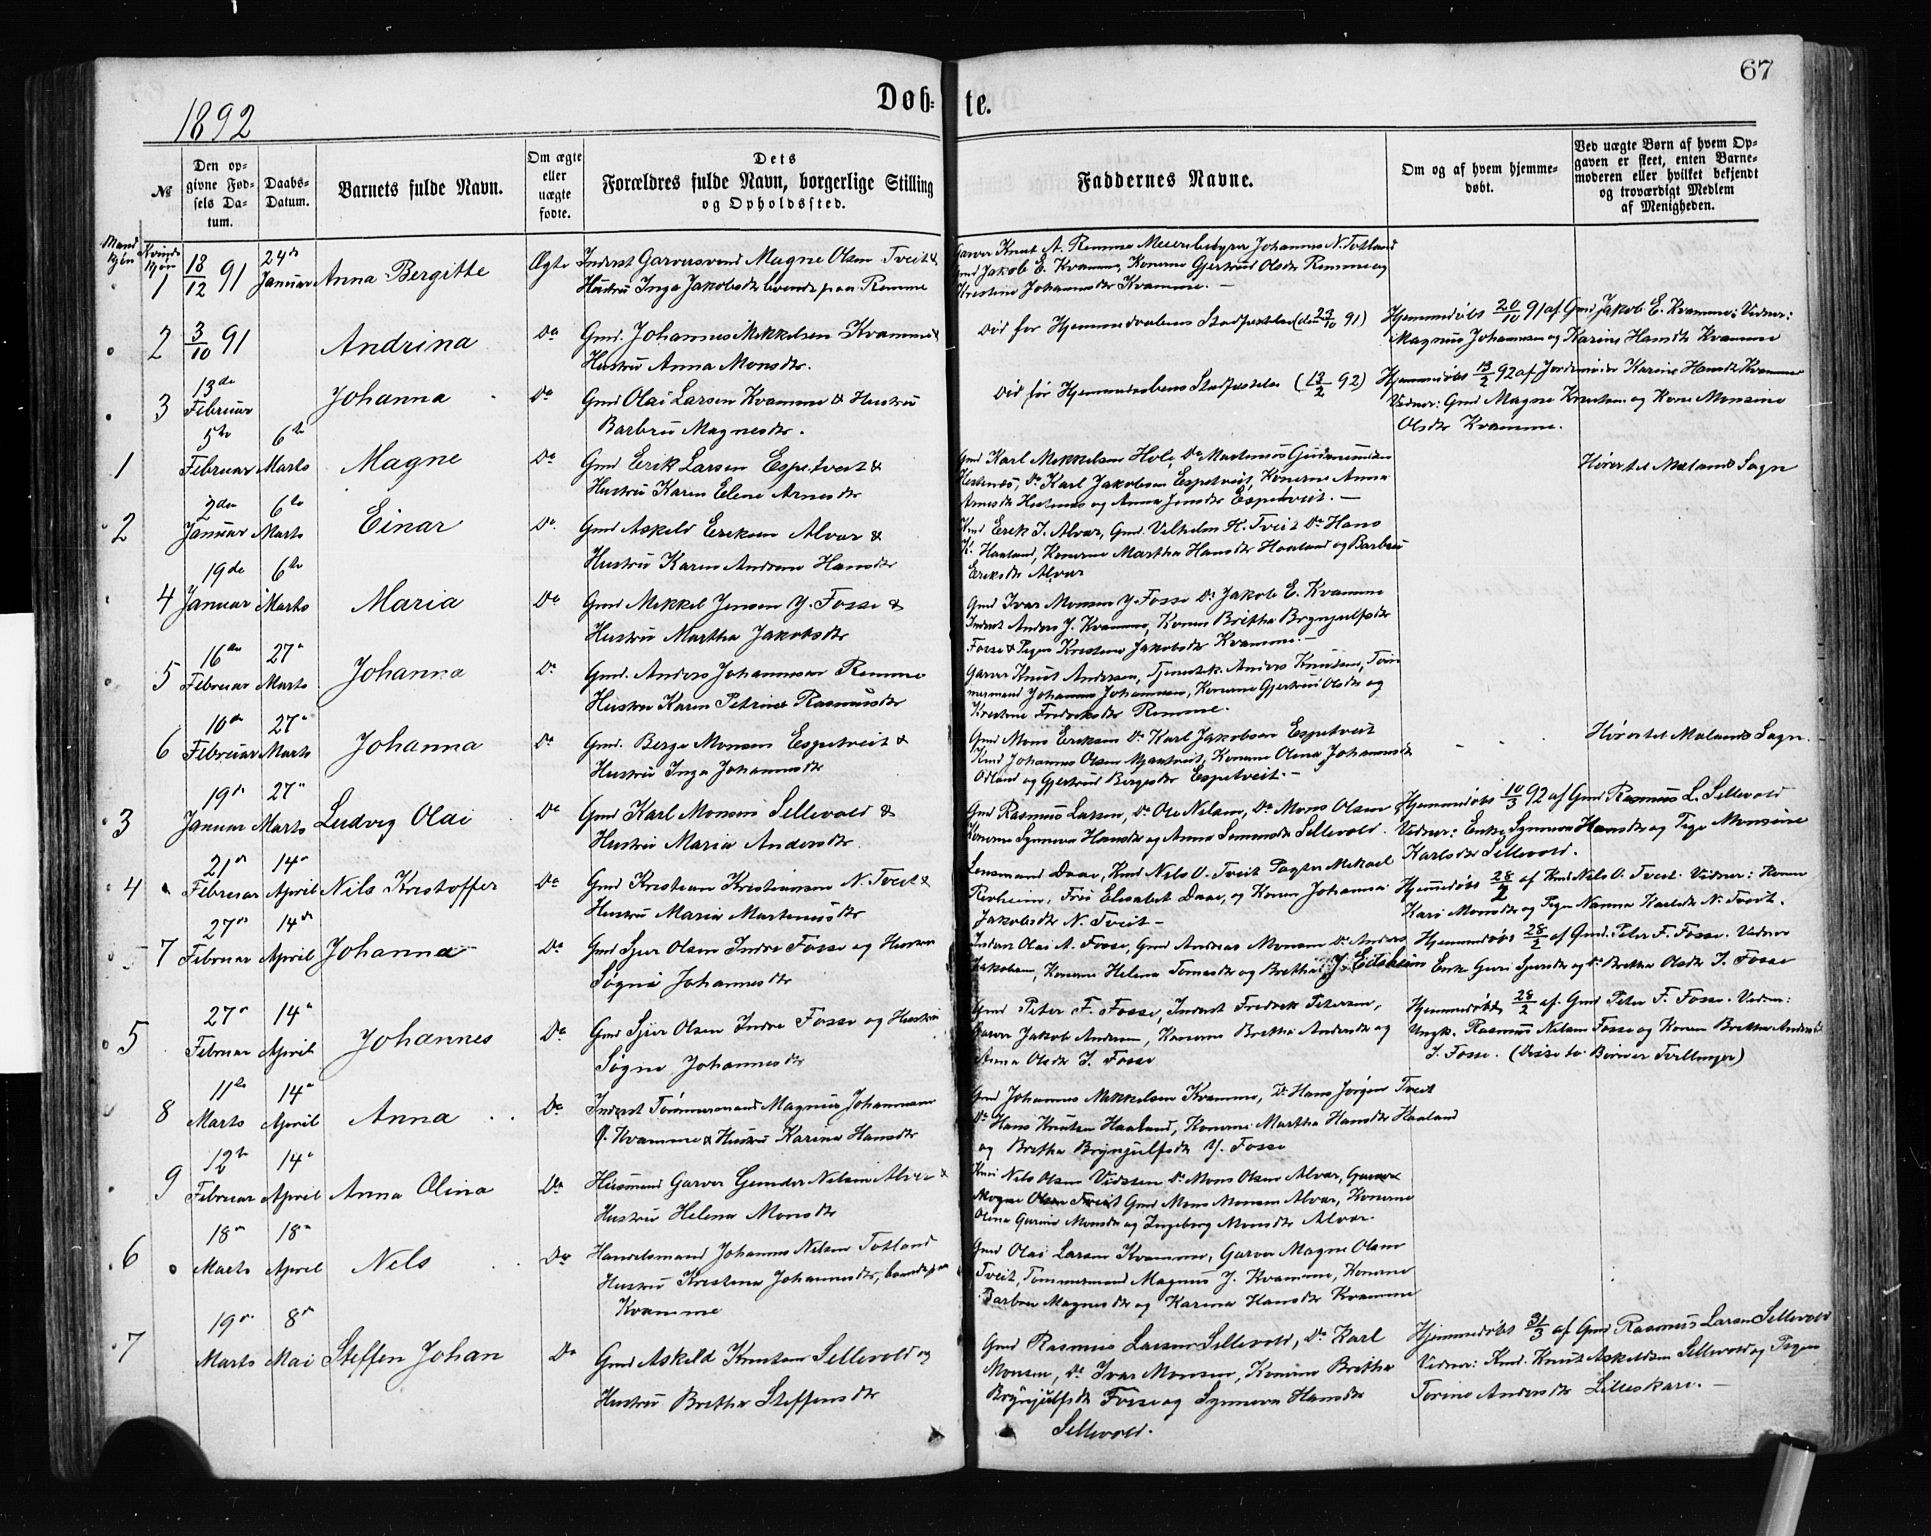 67
1892
Døb- te.
№
Den opgivne Fødsels Datum.
Daabs-Datum.
Barnets fulde Navn.
Om ægte eller uægte fødte.
Dets Forældres fulde Navn, borgerlige Stilling og Opholdssted.
Faddernes Navne.
Om og af hvem hjemmedøbt.
Ved uægte Børn af hvem Opgaven er skeet, enten Barnemoderen eller hvilket bekjendt og troværdigt Medlem af Menigheden.
Mandkjøn Kvindekjøn
1 18/12 91 24de Januar Anna Bergitte Ægte Inderst Garversvend Magne Olsen Tveit &
Hustru Inga Jakobsdtr boende paa Remme
Garver Knut A. Remme Meieribestyrer Johannes N. Totland
Gmd Jakob E. Kvamme, Konerne Gjertrud Olsdtr Remme og
Kristine Johannesdtr Kvamme. —
2 3/10 91 Andrina Do Gmd. Johannes Mikkelsen Kvamme &
Hustru Anna Monsdtr.
Død før Hjemmedaabens Stadfæstelse (den 24/10 91)
Hjemmedøbt 20/10 91 af Gmd Jakob E. Kvamme; Vidner:
Magnus Johannesen og Karine Hansdtr Kvamme
3 13de Februar Johanna Do Gmd Olai Larsen Kvamme & Hustru
Barbru Magnesdtr.
Død før Hjemmedaabens Stadfæstelse (13/2 92)
Hjemmedøbt 13/2 92 af Jordemoder Karine Hansdtr Kvamme
Vidner: Gmd Magne Knutsen og Kone Monsine
Olsdtr Kvamme.
1 5te Februar 6te Marts Magne Do Gmd Erik Larsen Espetveit &
Hustru Karen Eline Arnesdtr
Gmd Karl Mikkelsen Hole, Do Martinus Gudmundsen
Hestenes, Do Karl Jakobsen Espetveit, Konerne Anna
Arnesdtr Hestenes og Anna Jensdtr Espetveit. —
Hører til Mælands Sogn
2 2den Januar 6te Marts Einar Do. Gmd Askild Eriksen Alver &
Hustru Karen Andrine Hansdtr
Kmd Erik I. Alver, Gmd Vilhelm H. Tveit Do Hans
K. Haaland, Konerne Martha Hansdtr Haaland og Barbru
Eriksdtr Alver
4 19de Januar 6te Marts Maria Do Gmd Mikkel Jensen Y. Fosse &
Hustru Martha Jakobsdtr
Gmd Ivar Monsen Y. Fosse Do Jakob E. Kvamme
Inderst Anders J. Kvamme, Konen Britha Brynjulfsdtr
Fosse & Pigen Kristine Jakobsdtr Kvamme. —
5 16de Februar 27de Marts Johanna Do Gmd. Anders Johannesen Remme
Hustru Karen Petrine Rasmusdtr
Garver Knut Andersen, Tjenestek. Anders Knudsen, Tømmermand Johannes Johannesen, Konerne Gjertrud Olsdtr og
Kristine Fredriksdtr Remme.
6 10de Februar 27de Marts Johanna Do Gmd. Berge Monsen Espetveit &
Hustru Inga Johannesdtr
Gmd Mons Eriksen Do Karl Jakobsen Espetveit
Kmd Johannes Olsen Mjaatveit, Konerne Olina Johannesdtr
Odland og Gjertrud Bergesdtr Espetveit. —
Hører til Mælands Sogn.
3 19de Januar 27de Marts Ludvig Olai Do Gmd Karl Monsen Sellevold &
Hustru Maria Andersdtr.
Gmd Rasmus Larsen, Do Ole Nilsen, Do Mons Olsen,
Konerne Synneva Hansdtr og Anna Simonsdtr Sellevold.
Hjemmedøbt 10/3 92 af Gmd Rasmus L. Sellevold
Vidner: Enke Synneva Hansdtr og Pige Monsine
Karlsdtr Sellevold.
4 21de Februar 14de April Nils Kristoffer Do Gmd Kristian Kristiansen N. Tveit &
Hustru Maria Martinusdtr
Lensmand Daae, Kmd Nils O. Tveit Pagter Mikael
Revheim, Frøi Elisabet Daae, og Konen Johanna
Jakobsdtr N. Tveit —
Hjemmedøbt 28/2 af Kmd Nils O. Tveit. Vidner: Konen
Kari Monsdtr og Pige Nanna Karlsdtr N. Tveit.
7 27de Februar 14de April Johanna Do Gmd Sjur Olsen Indre Fosse og Hustru
Søgni Johannesdtr
Inderst Olai A. Fosse, Gmd Andreas Monsen Do Anders
Jakobsen, Konerne Helena Tomesdtr og Britha J. Eidsheim
Hjemmedøbt 28/2 af Gmd. Peter F. Fosse. Vidner
Enke Guri Sjursdtr og Do Britha Olsdtr I. Fosse
5 27de Februar 14de April Johannes Do Gmd Sjur Olsen Indre Fosse og Hustru
Søgne Johannesdtr
Gmd Peter F. Fosse, Inderst Fredrik Petersen,
Garver Jakob Andersen, Konerne Britha Andersdtr og
Anna Olsdtr I. Fosse
Hjemmedøbt 28/2 af Gmd Peter F. Fosse. Vidner:
Ungk. Rasmus Nilsen Fosse og Konen Britha Andersdtr
I. Fosse. (Disse to Børn er Tvillinger)
8 11te Marts 14de April Anna Do Inderst Tømmermand Magnus Johannesen
Kvamme & Hustru Karina Hansdtr
Gmd Johannes Mikkelsen Kvamme, Do Hans Jørgen Tveit
Do Hans Knutsen Haaland, Konerne Martha Hansdtr Haaland
og Britha Brynjulfsdtr Y. Fosse
9 12te Februar 14de April Anna Olina Do Husmand Garver Gunder Nilsen Alver &
Hustru Helena Monsdtr
Kmd Nils Olsen Vidsten Do Mons Olsen Alver, Garver
Magne Olsen Tveit Gmd Mons Monsen Alver, Konerne
Olina Gurine Monsdtr og Ingeborg Monsdtr Alver.
6 18de Marts 18de April Nils Do Handelsmand Johannes Nilsen Totland
Hustru Kristina Johannesdtr, boende paa
Kvamme
Gmd Olai Larsen Kvamme, Garver Magne Olsen
Tveit, Tømmermand Magnus J. Kvamme, Konerne
Barbru Magnesdtr og Karina Hansdtr Kvamme
7 19de Marts 8de Mai Steffen Johan Do Gmd Askild Knutsen Sellevold og
Hustru Britha Steffensdtr
Gmd Rasmus Larsen Sellevold, Do Karl
Monsen, Do Ivar Monsen, Konerne Britha
Brynjulfsdtr Fosse og Synneva Hansdtr
Sellevold.
Hjemmedøbt 31/3 af Gmd Rasmus Larsen Sellevold
Vidner: Kmd. Knut Askildsen Sellevold og Pigen
Torine Andersdtr Lilleskare. —